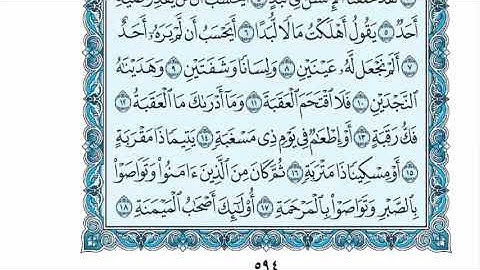 لَقَدْ خَلَقْنَا ٱلْإِنسَٰنَ فِى كَبَدٍ ۝٤ أَيَحْسَبُ أَن لَّن يَقْدِرَ عَلَيْهِ
أَحَدٌ ۝٥ يَقُولُ أَهْلَكْتُ مَالًا لُّبَدًا ۝٦ أَيَحْسَبُ أَن لَّمْ يَرَهُۥٓ أَحَدٌ
۝٧ أَلَمْ نَجْعَل لَّهُۥ عَيْنَيْنِ ۝٨ وَلِسَانًا وَشَفَتَيْنِ ۝٩ وَهَدَيْنَٰهُ
ٱلنَّجْدَيْنِ ۝١٠ فَلَا ٱقْتَحَمَ ٱلْعَقَبَةَ ۝١١ وَمَآ أَدْرَىٰكَ مَا ٱلْعَقَبَةُ ۝١٢
فَكُّ رَقَبَةٍ ۝١٣ أَوْ إِطْعَٰمٌ فِى يَوْمٍ ذِى مَسْغَبَةٍ ۝١٤ يَتِيمًا ذَا مَقْرَبَةٍ
۝١٥ أَوْ مِسْكِينًا ذَا مَتْرَبَةٍ ۝١٦ ثُمَّ كَانَ مِنَ ٱلَّذِينَ ءَامَنُوا۟ وَتَوَاصَوْا۟
بِٱلصَّبْرِ وَتَوَاصَوْا۟ بِٱلْمَرْحَمَةِ ۝١٧ أُو۟لَٰٓئِكَ أَصْحَٰبُ ٱلْمَيْمَنَةِ ۝١٨
٥٩٤